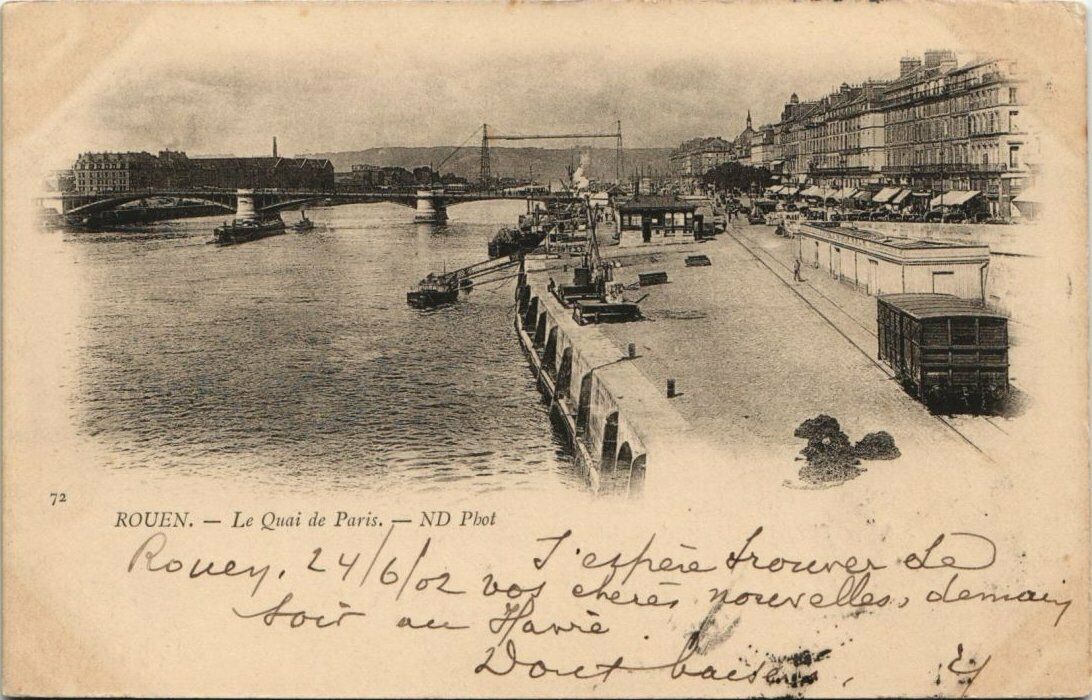 72
ROUEN. — Le Quai de Paris. — ND Phot
Rouen, 24/6/02 J'espère trouver de
vos chères nouvelles, demain
soir au Havre.
Dout baiser